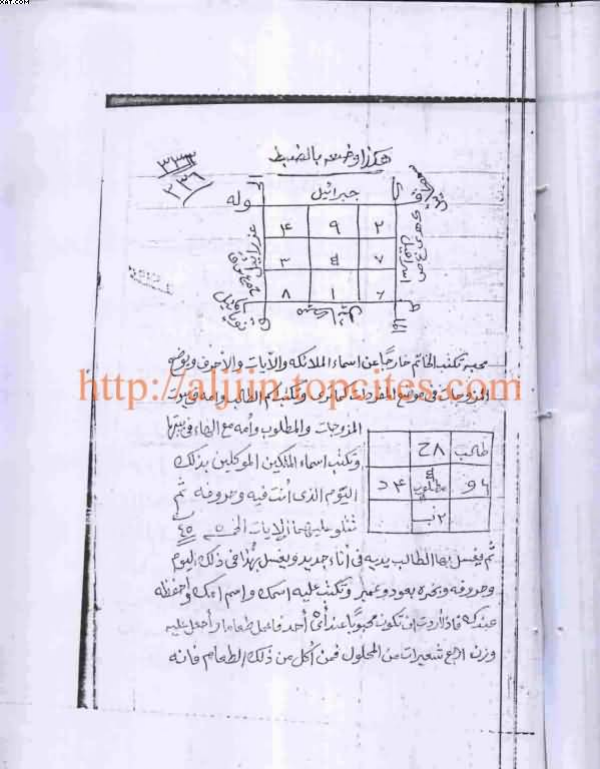 XAT.COM
هكذا وضعه بالضبط
٣٣٣
٢٣٦
جبرائيل
وله
اسرافيل
٤ ٩ ٢
٣ ٥ ٧
٨ ١ ٦
محبة تكتب الخاتم خارجًا عن اسماء الملائكه والآيات والأحرف ويوضع
المزوجات فى مواضع المفردات كما ترى وتكتب اسم الطالب وامه فى بيوت
http://aljjin.topcites.com
المزوجات والمطلوب وأمه مع الهاء فى بيتها
وتكتب اسماء الملكين الموكلين بذلك
اليوم الذى أنت فيه وحروفه ثم
تتلو عليهما الايات الخمس ٤٥
طالب ٨ح
٦و مطلوب ٤د
٢ب
ثم يغسل بها الطالب يديه فى أناء جديد ويغسل بهذا فى ذلك اليوم
وحروفه وبخره بعود وعنبر وتكتب عليه اسمك واسم امك واحفظه
عندك فاذا أردت ان تكون محبوبًا عند أى أحد فاعمل طعاما واجعل عليه
وزن اربع شعيرات من المحلول فمن أكل من ذلك الطعام فانه